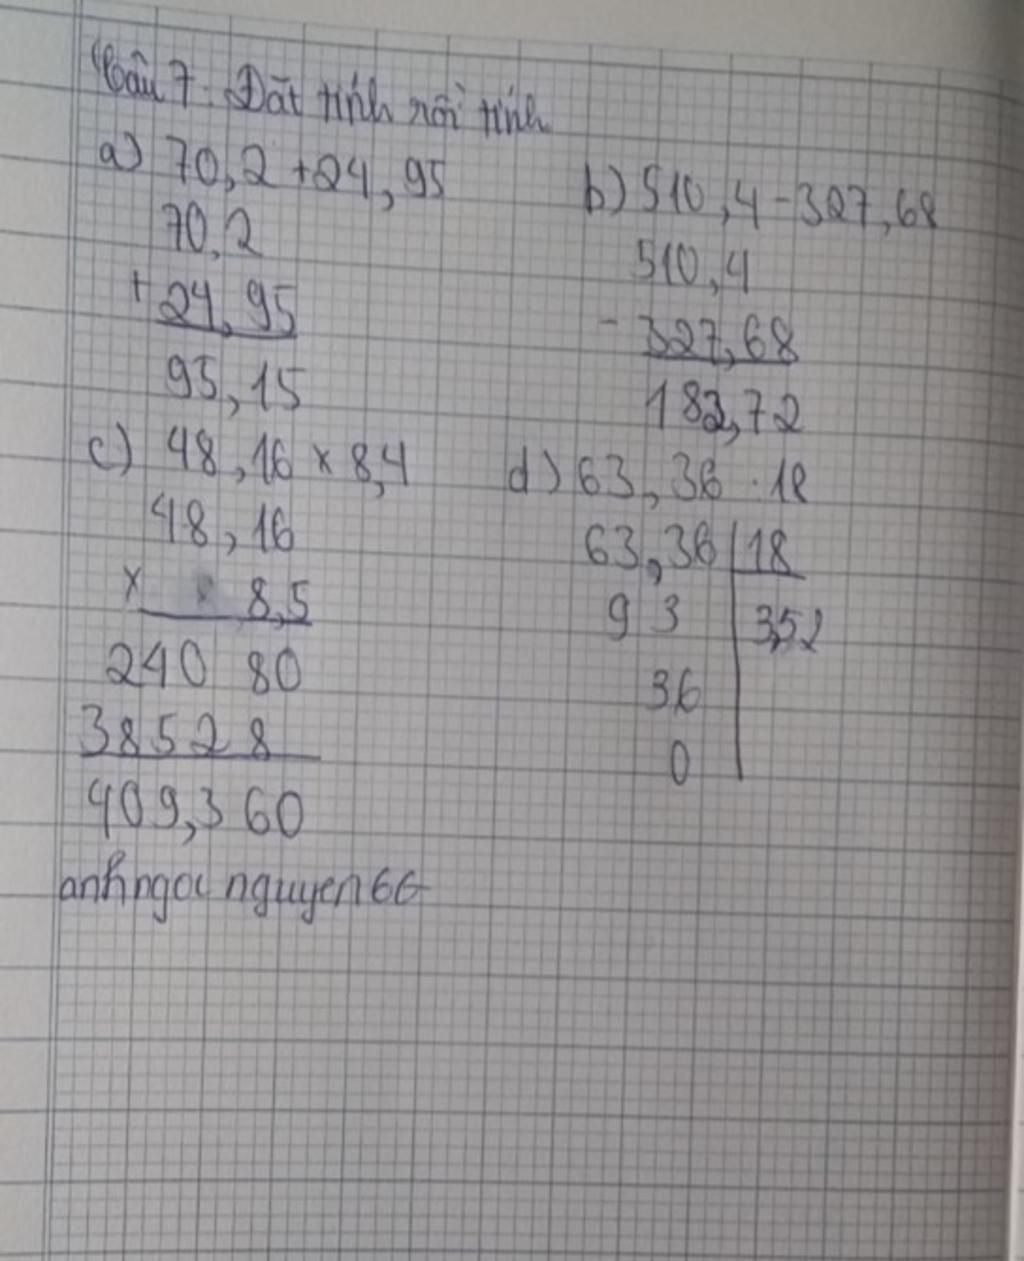 Câu 7. Đặt tính rồi tính
a) 70,2 + 24,95
b) 510,4 - 327,68
70,2
510,4
+ 24,95
- 327,68
95,15
182,72
c) 48,16 x 8,4
d) 63,36 : 18
48,16
63,36 | 18
x 8,5
9 3 | 3,52
240 80
36
3852 8
0
409,3 60
anhngoc nguyen66